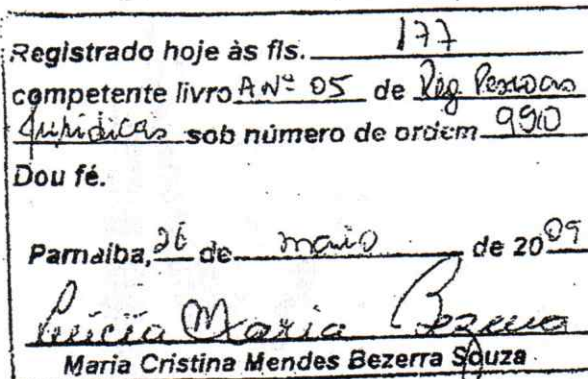 Registrado hoje às fls. 177
competente livro A Nº 05 de Reg Pessoas
Jurídicas sob número de ordem 990
Dou fé.
Parnaíba, 26 de maio de 2009
Lúcia Maria Bezerra
Maria Cristina Mendes Bezerra Souza